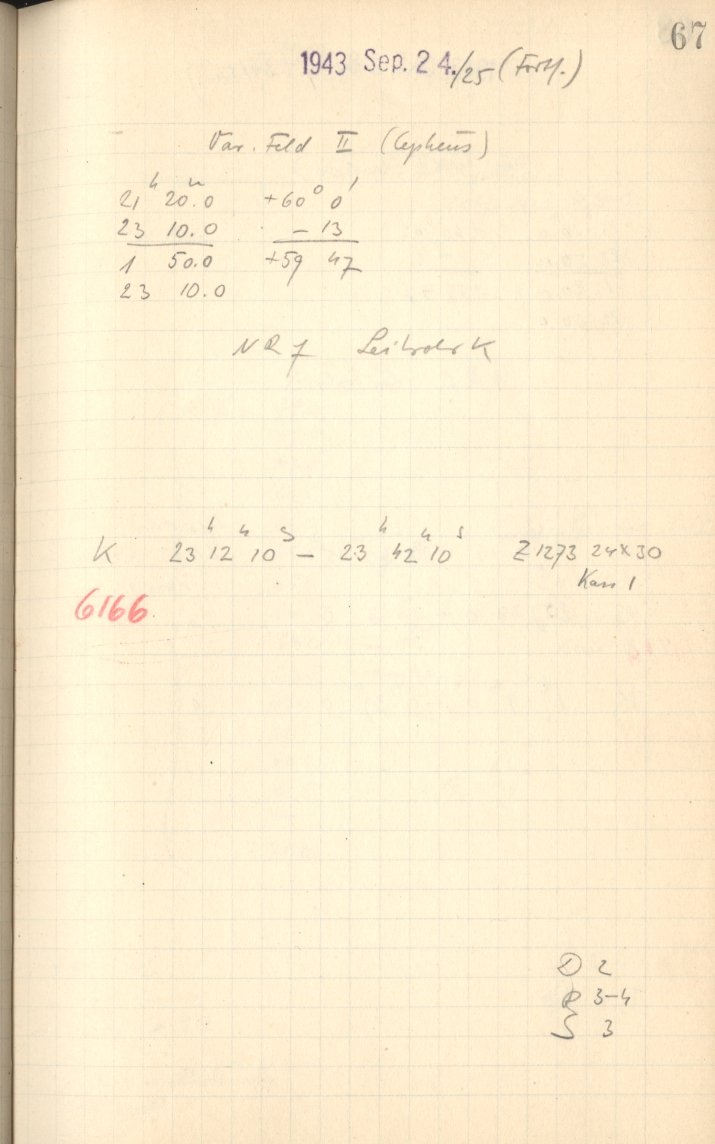 67
1943 Sep. 24./25 (Forts.)
Var. Feld II (Cepheus)
21ʰ 20ᵐ.0 +60° 0'
23 10.0 - 13
1 50.0 +59 47
23 10.0
Leitrohr K
K 23ʰ 12ᵐ 10ˢ - 23ʰ 42ᵐ 10ˢ Z1273 24x30
Kass 1
6166
D 2
R 3-4
S 3